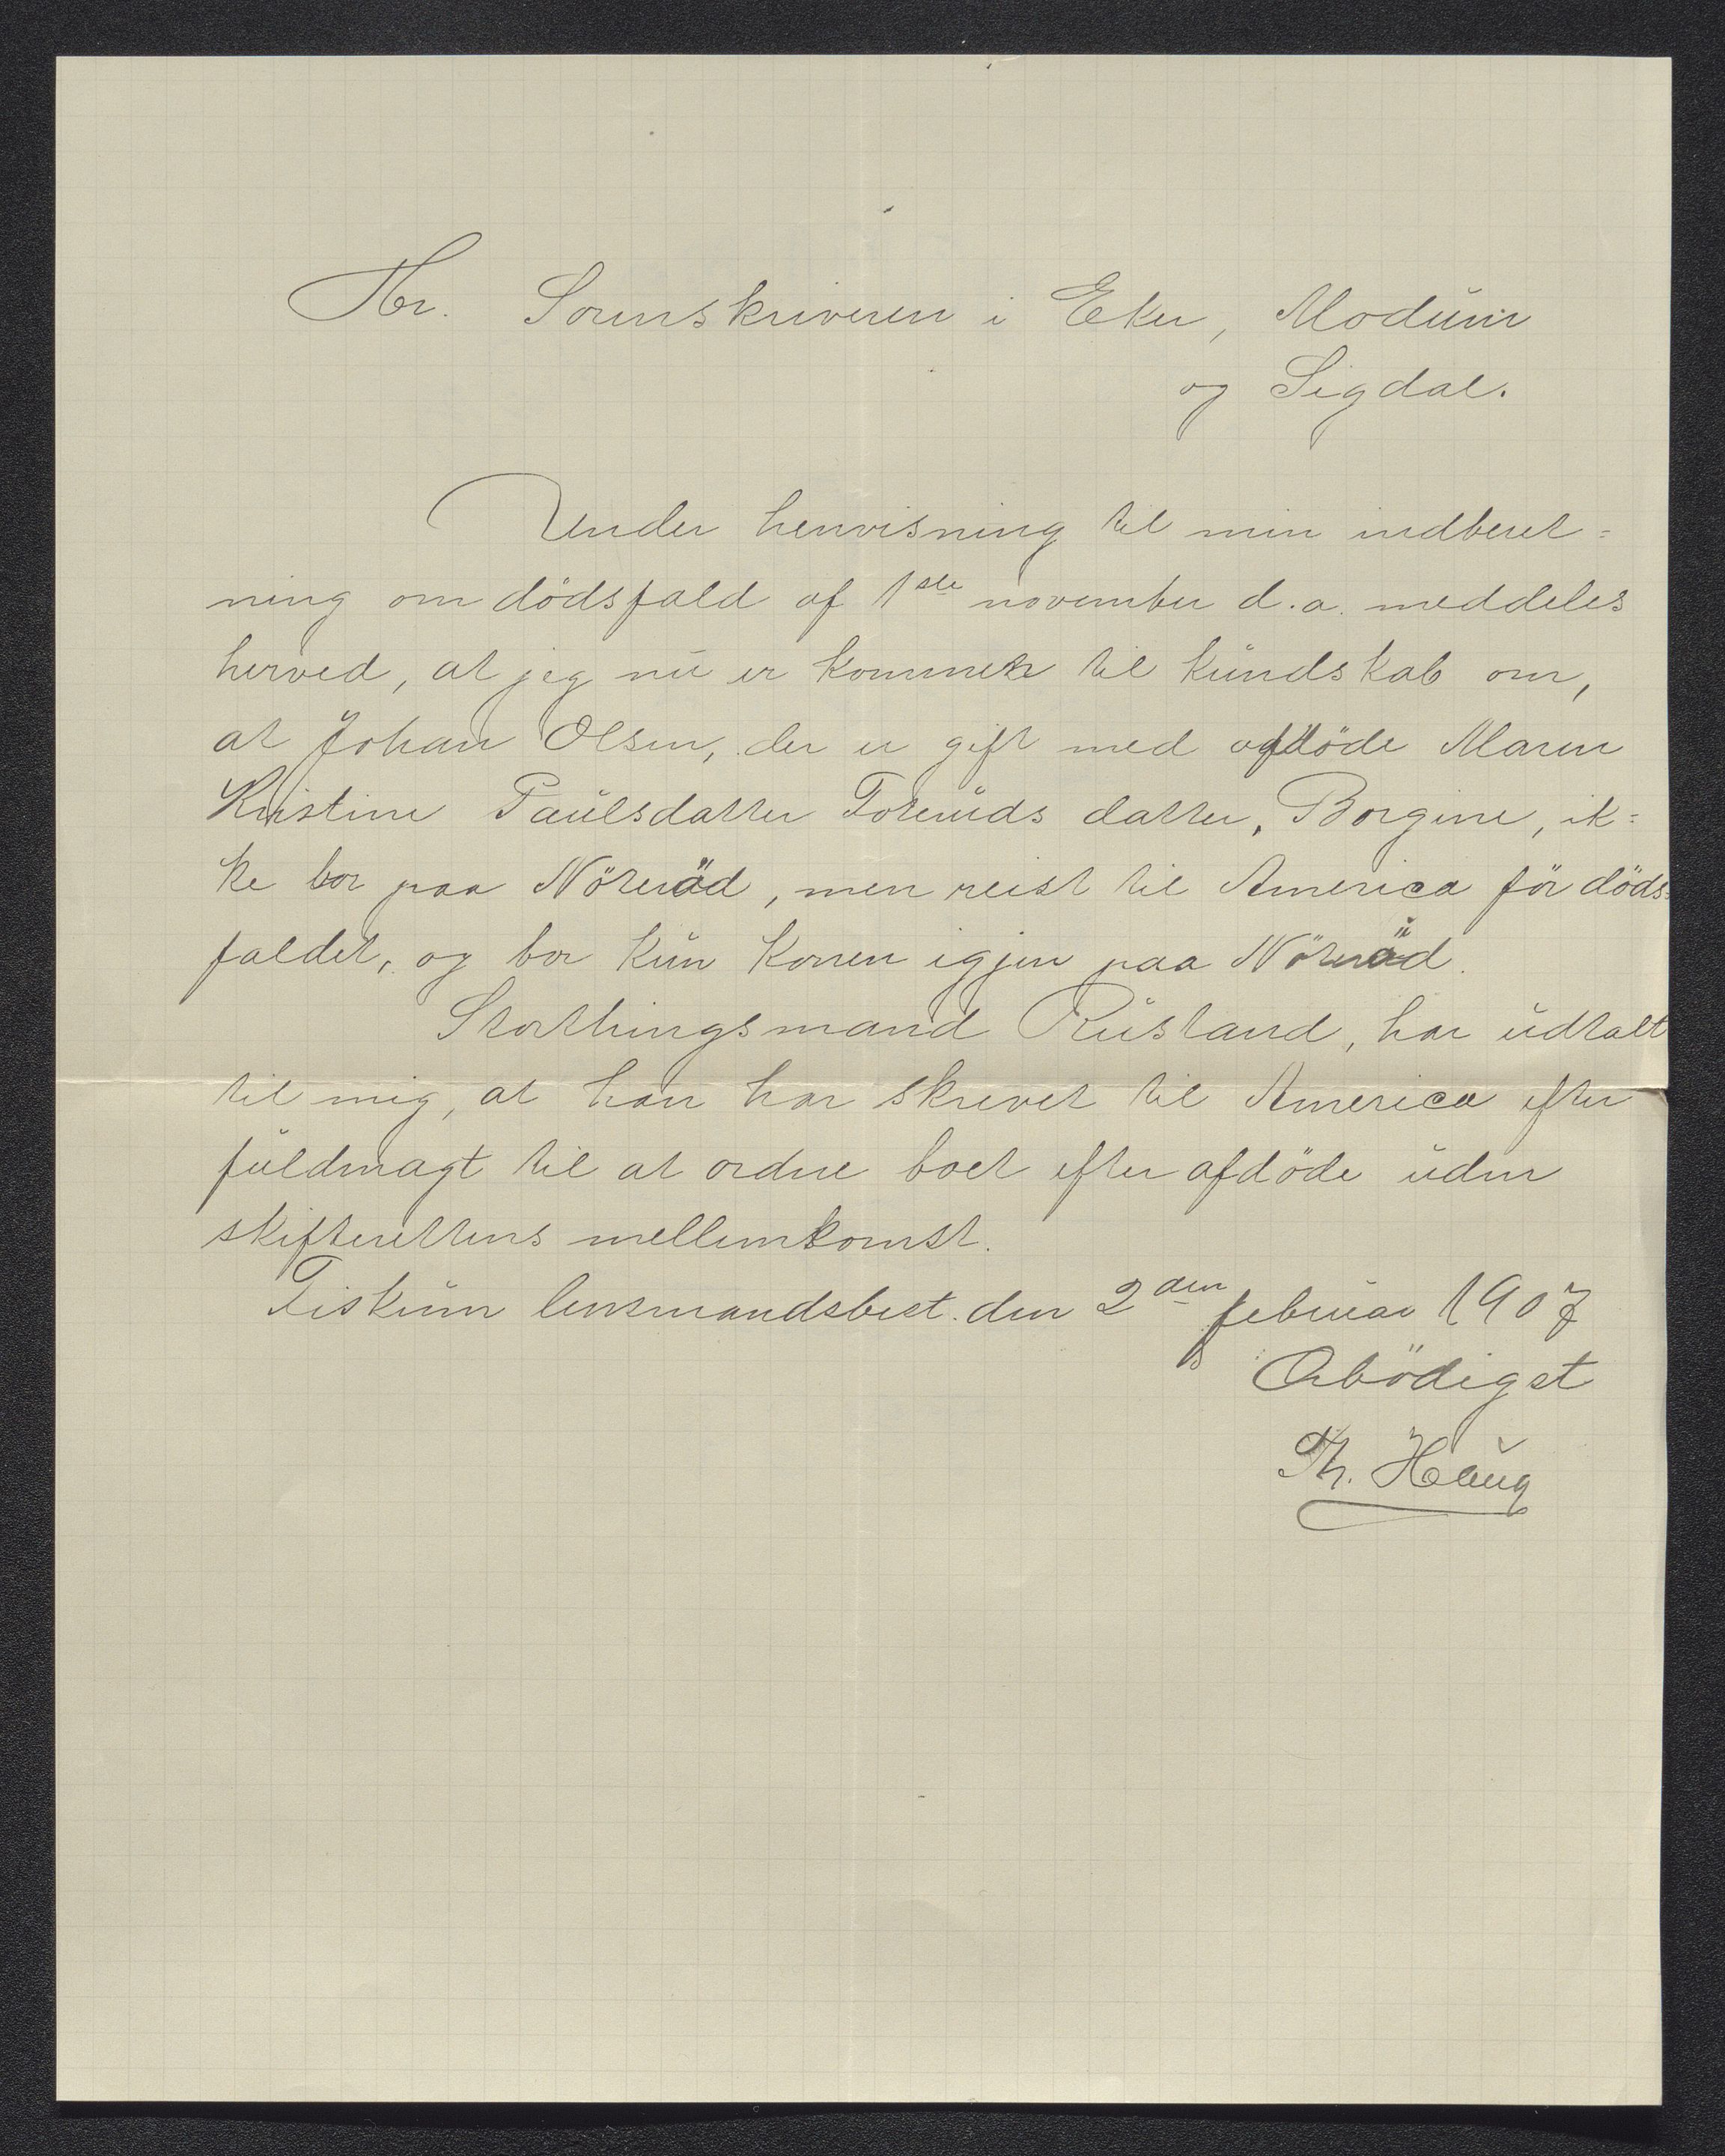 Hr. Sorenskriveren i Eker, Modum
og Sigdal.
Under henvisning til min indberet=
ning om dödsfald af 1ste november d.a. meddeles
herved, at jeg nu er kommen til kundskab om,
at Johan Olsen, der er gift med afdöde Maren
Kristine Paulsdatter Foteruds datter, Borgine, ik=
ke bor paa Nöteröd, men reist til America för döds=
faldet, og bor kun konen igjen paa Nöteröd.
Storthingsmand Rustand, har udtalt
til mig, at han har skrevet til America efter
fuldmagt til at ordne boet efter afdöde uden
skifterettens mellemkomst.
Fiskum lensmandsbest. den 2den februar 1907
Ærbödigst
Th. Haug